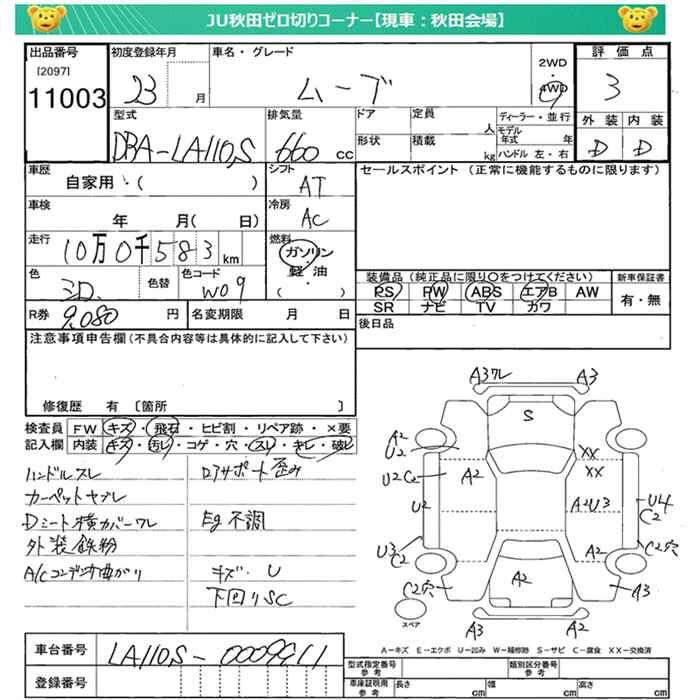 JU秋田ゼロ切りコーナー【現車：秋田会場】
出品番号 初度登録年月 車名・グレード 評価点
[2097]
11003 23 月 ムーブ 2WD 4WD 3
型式 排気量 ドア 定員 人 ディーラー・並行 外装 内装
DBA-LA110S 660 cc 形状 積載 kg モデル年式 年 ハンドル 左・右 D D
車歴 シフト セールスポイント（正常に機能するものに限ります）
自家用・（ ） AT
車検 冷房
年 月（ 日） AC
走行 燃料
10万0千583km ガソリン・軽油・（ ）
色 色替 色コード 装備品（純正品に限り○をつけてください） 新車保証書
W09 PS PW ABS エアB AW 有・無
SR ナビ TV カワ
R券 9,080 円 名変期限 月 日 後日品
注意事項申告欄（不具合内容等は具体的に記入して下さい）
修復歴 有〔箇所 〕
検査員 FW キズ・飛石・ヒビ割・リペア跡・×要
記入欄 内装 キズ・汚レ・コゲ・穴・スレ・キレ・破レ
ハンドルスレ
カーペットヤブレ
Dシート横カバーワレ
外装鉄粉
A/Cコンデンサ曲がり
ロアサポート歪み
Eg不調
キズ・U
下回りSC
A3ワレ A3
S
A2 U2 XX
XX
U2C2 A2
U2 A2U3 U4 C2
U3 C2 A2 C2穴
C2穴 A2 A3
スペア A3 A2
A－キズ E－エクボ U－凹み W－補修跡 S－サビ C－腐食 XX－交換済
車台番号 LA110S-0009911
登録番号
型式指定番号 参考 類別区分番号 参考
車庫証明用 参考 長さ cm 幅 cm 高さ cm